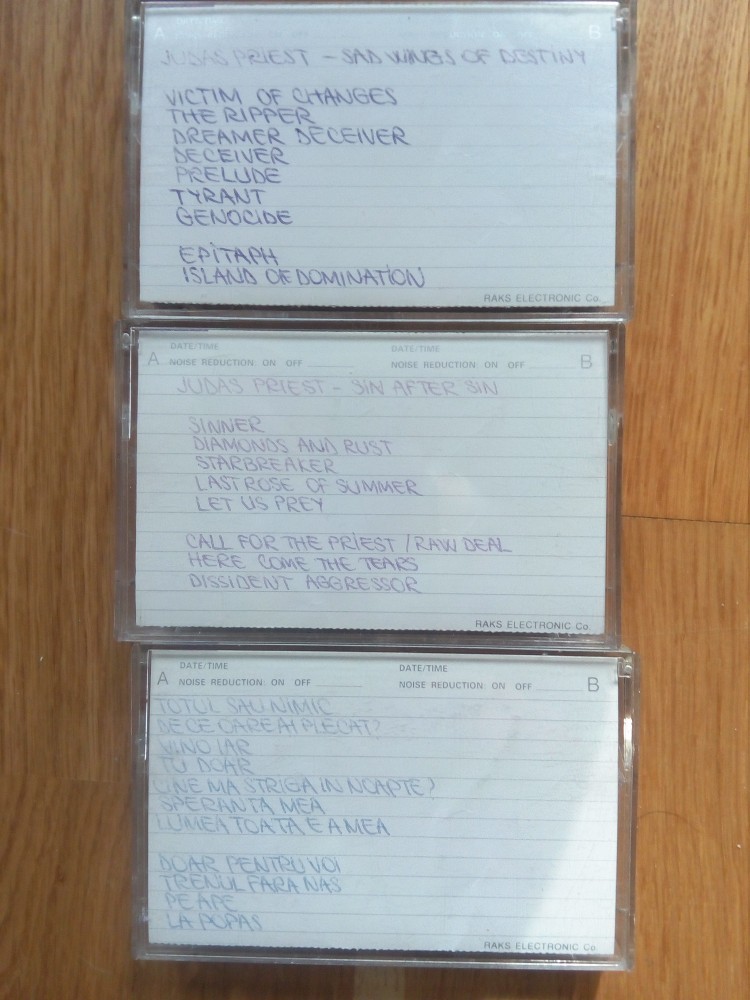 A B
JUDAS PRIEST - SAD WINGS OF DESTINY
VICTIM OF CHANGES
THE RIPPER
DREAMER DECEIVER
DECEIVER
PRELUDE
TYRANT
GENOCIDE
EPiTAPH
ISLAND OF DOMINATION
RAKS ELECTRONIC Co.
DATE/TIME DATE/TIME
A NOISE REDUCTION: ON OFF NOISE REDUCTION: ON OFF B
JUDAS PRIEST - SIN AFTER SIN
SINNER
DIAMONDS AND RUST
STARBREAKER
LAST ROSE OF SUMMER
LET US PREY
CALL FOR THE PRIEST / RAW DEAL
HERE COME THE TEARS
DISSIDENT AGGRESSOR
RAKS ELECTRONIC Co.
DATE/TIME DATE/TIME
A NOISE REDUCTION: ON OFF NOISE REDUCTION: ON OFF B
TOTUL SAU NIMIC
DE CE OARE AI PLECAT?
VINO IAR
TU DOAR
CINE MA STRIGA IN NOAPTE?
SPERANTA MEA
LUMEA TOATA E A MEA
DOAR PENTRU VOI
TRENUL FARA NAS
PE APE
LA POPAS
RAKS ELECTRONIC Co.